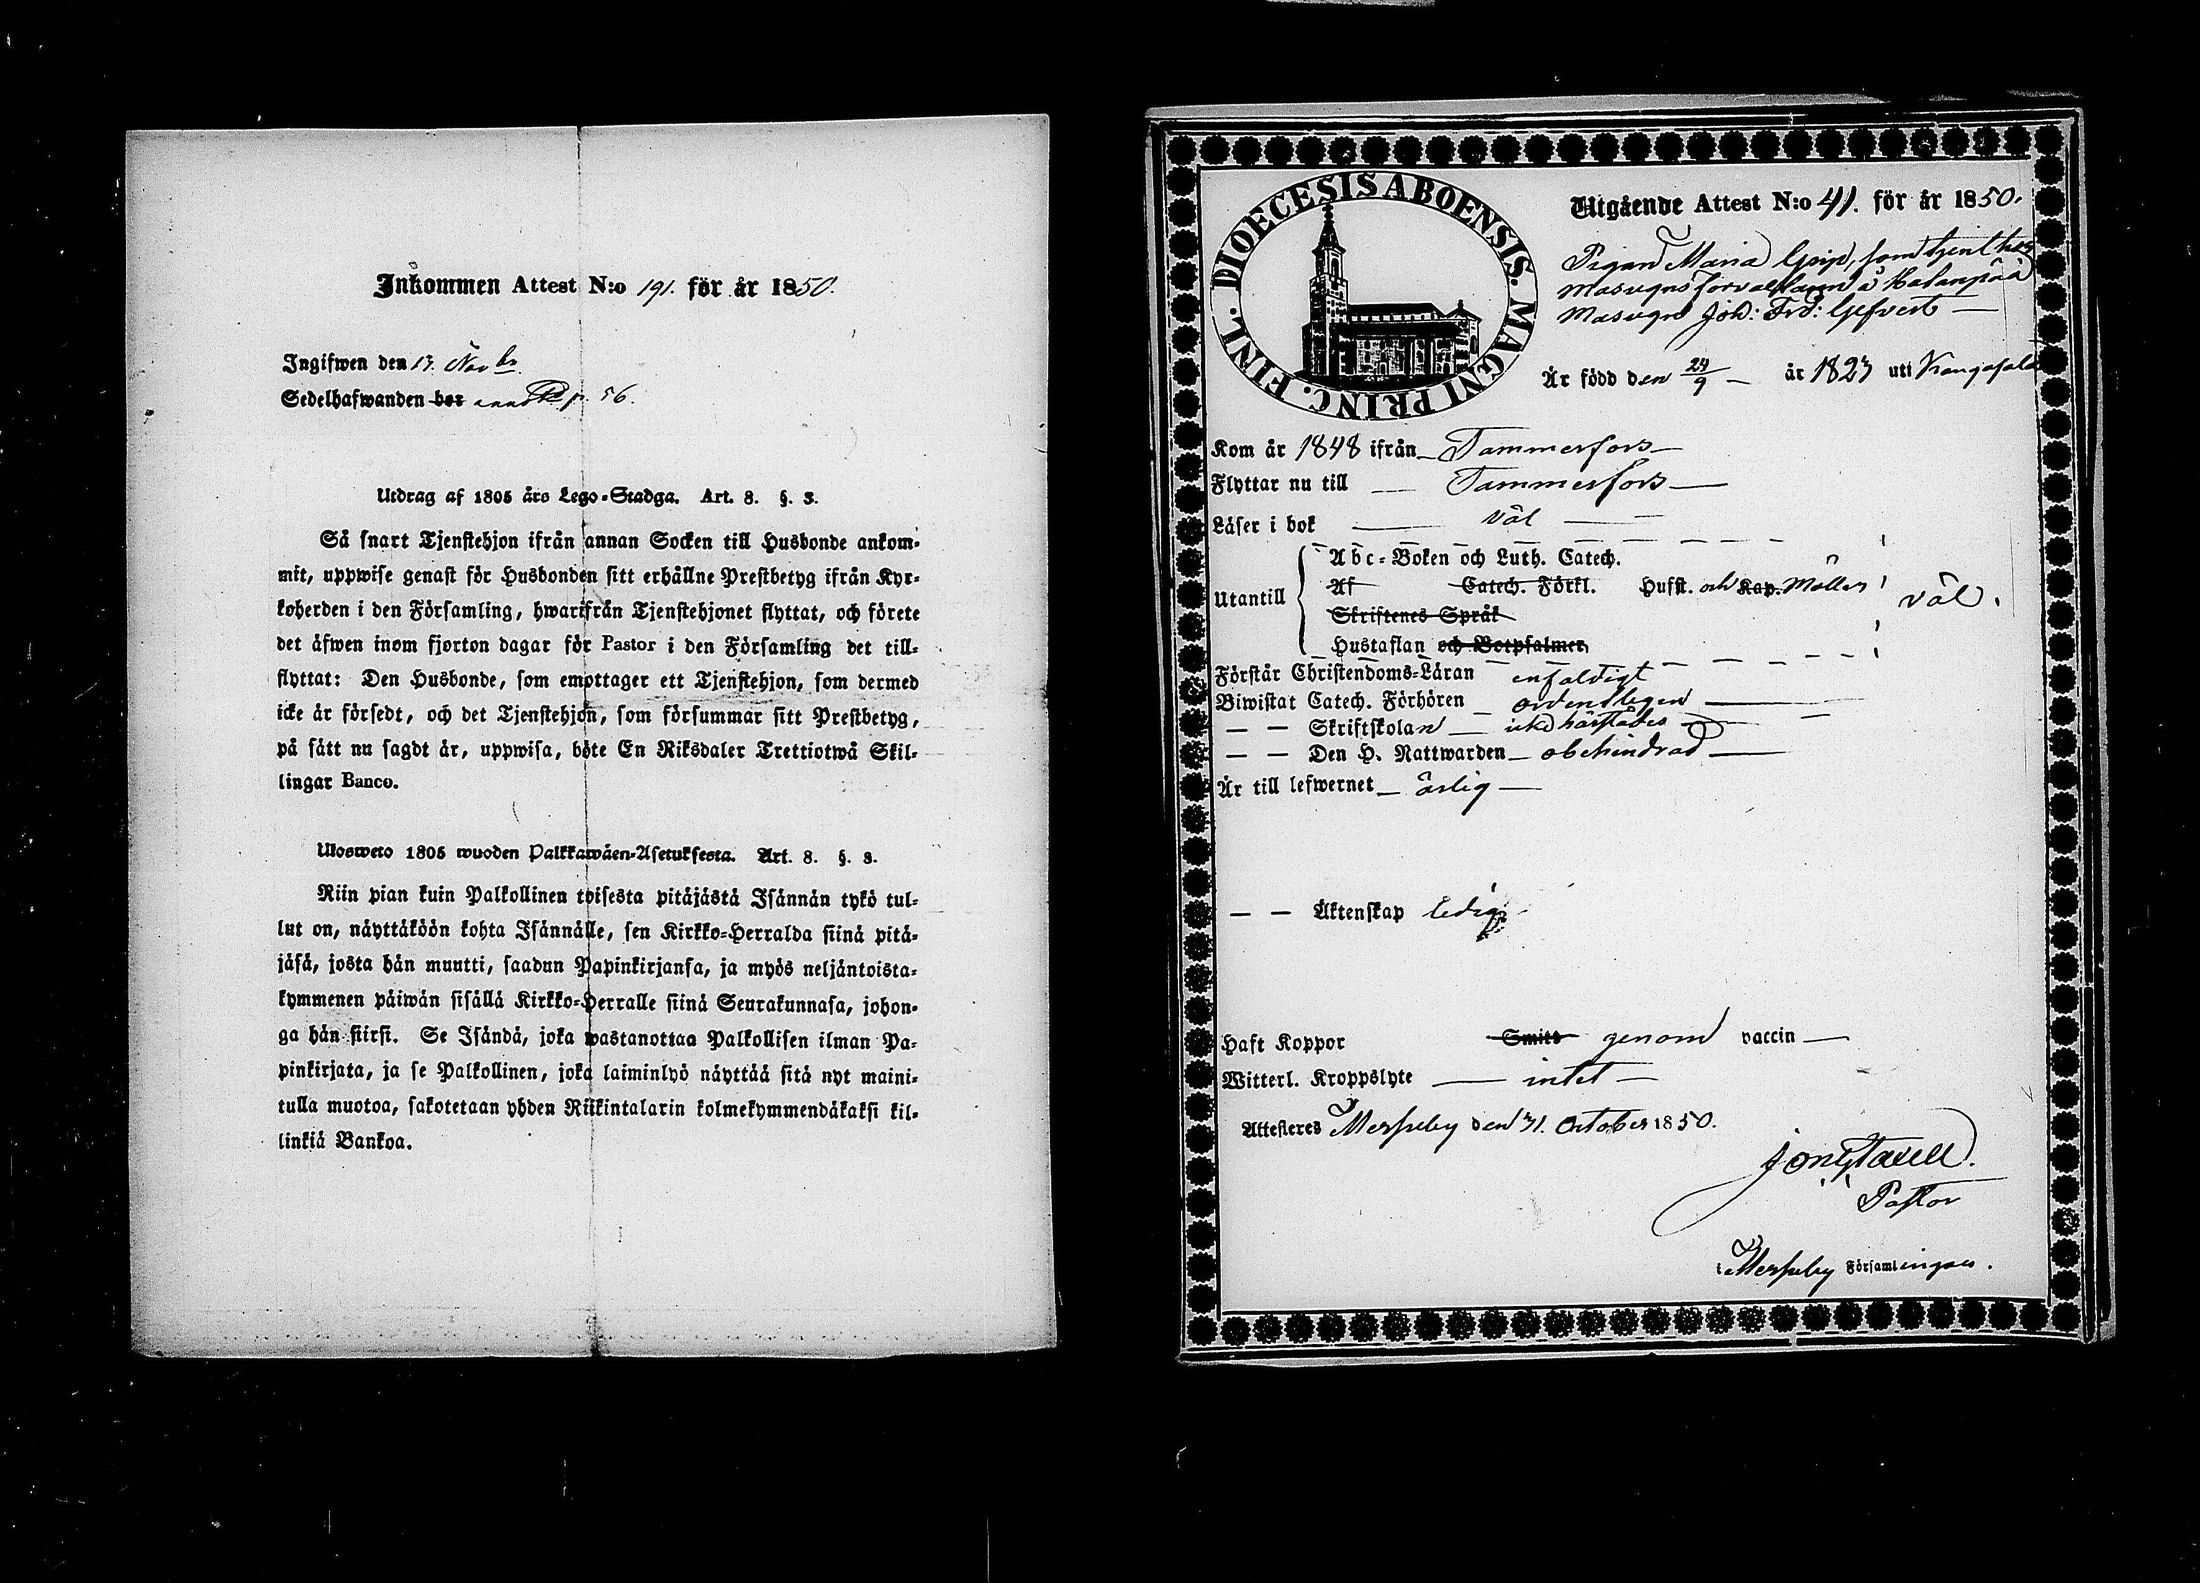 Inkommen Attest N:o 191. för år 1850.
Ingifwen den 13. Nov br.
Sedelhafwanden bor p. 56.
Utdrag af 1805 års Lego-Stadga. Art. 8. §. 3.
Så snart Tjenstehjon ifrån annan Socken till Husbonde ankom-
mit, uppwise genast för Husbonden sitt erhållne Prestbetyg ifrån Kyr-
koherden i den Församling, hwarifrån Tjenstehjonet flyttat, och förete
det äfwen inom fjorton dagar för Pastor i den Församling det till-
flyttat: Den Husbonde, som emottager ett Tjenstehjon, som dermed
icke är försedt, och det Tjenstehjon, som försummar sitt Prestbetyg,
på sätt nu sagdt är, uppwisa, böte En Riksdaler Trettiotwå Skil-
lingar Banco.
Ulosweto 1805 wuoden Palkkawäen-Asetuksesta. Art. 8. §. 3.
Niin pian kuin Palkollinen toisesta pitäjästä Isännän tykö tul-
lut on, näyttäköön kohta Isännälle, sen Kirkko-Herralda siinä pitä-
jäsä, josta hän muutti, saadun Papinkirjansa, ja myös neljäntoista-
kymmenen päiwän sisällä Kirkko-Herralle siinä Seurakunnasa, johon-
ga hän siirsi. Se Isändä, joka wastanottaa Palkollisen ilman Pa-
pinkirjata, ja se Palkollinen, joka laiminlyö näyttää sitä nyt maini-
tulla muotoa, sakotetaan yhden Riikintalarin kolmekymmendäkaksi kil-
linkiä Bankoa.
DIOECESIS ABOENSIS. MAGNI PRINC. FINL.
Utgående Attest N:o 41. för år 1850.
Pigan Maria Grip, som tjent hos
Masugnsförvaltaren å Halanpää
Masugn Joh: Frd: Gefvert
Är född den 24/9 år 1823 uti Kangasala
Kom år 1848 ifrån Tammerfors
Flyttar nu till Tammerfors
Läser i bok väl
Utantill
Abc-Boken och Luth. Catech.
Af Catech. Förkl. Husst. och Kap. Möller väl.
Skriftenes Språk
Hustaflan och Botpsalmer,
Förstår Christendoms-Läran enfaldigt
Biwistat Catech. Förhören ordentligen
— — Skriftskolan icke härstädes
— — Den H. Nattwarden obehindrad
Är till lefwernet ärlig
— — Äktenskap ledig
Haft Koppor Smitt genom vaccin
Witterl. Kroppslyte intet
Attesteres Merseby den 31. October 1850.
Pastor
i Merseby Församlingen.